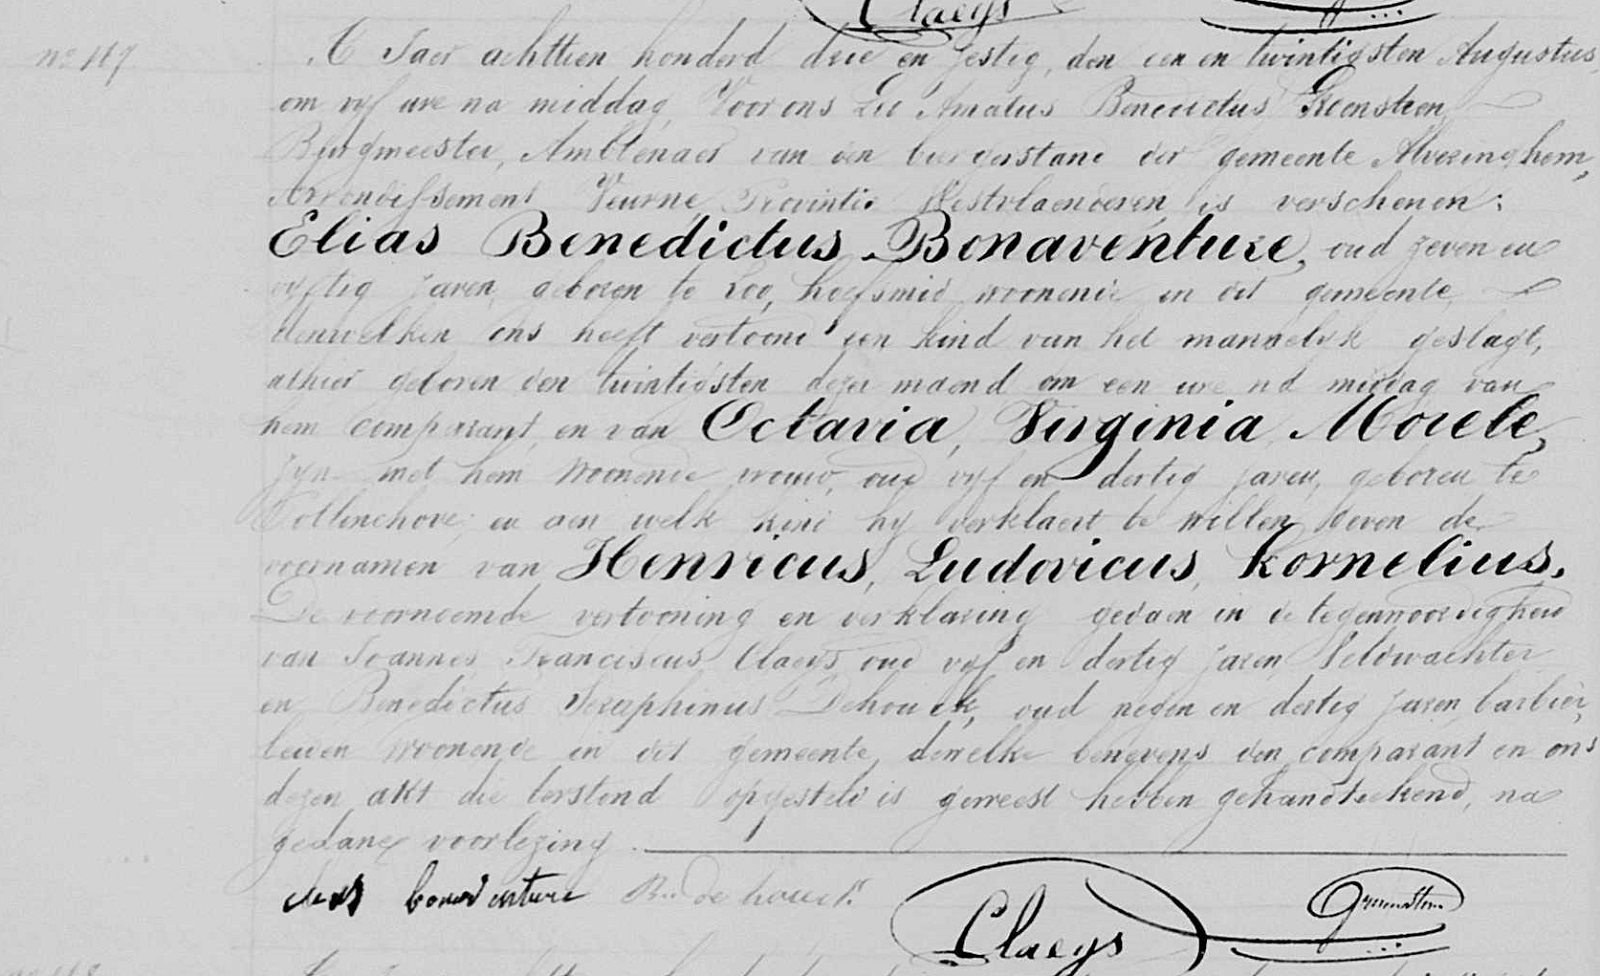 Claeys
n° 117
't Jaer achttien honderd drie en zestig, den een en twintigsten Augustus,
om vyf ure na middag, Voor ons Leo Amatus Benedictus
Burgmeester, Ambtenaer van den burgerstand der gemeente Alveringhem,
Arrondissement Veurne, Provintie Westvlaenderen, is verschenen:
Elias Benedictus Bonaventure, oud zeven en
vyftig jaren, geboren te Loo, hoefsmid woonende in dit gemeente,
denwelken ons heeft vertoond een kind van het mannelyk geslagt,
alhier geboren den twintigsten dezer maend om een ure na middag van
hem comparant, en van Octavia, Virginia Morele,
zyn met hem woonende vrouw, oud vyf en dertig jaren, geboren te
Pollinchove; en aen welk kind hy verklaert te willen geven de
voornamen van Henricus, Ludovicus, Kornelius.
De voornoemde vertooning en verklaring gedaen in de tegenwoordigheid
van Joannes Franciscus Claeys oud vyf en dertig jaren, Veldwachter
en Benedictus Seraphinus Dehouck, oud negen en dertig jaren, barbier,
beiden woonende in dit gemeente, dewelke benevens den comparant en ons
dezen akt die terstond opgesteld is geweest hebben gehandteekend, na
gedane voorlezing.
elias bonaventure B. de houck
Claeys